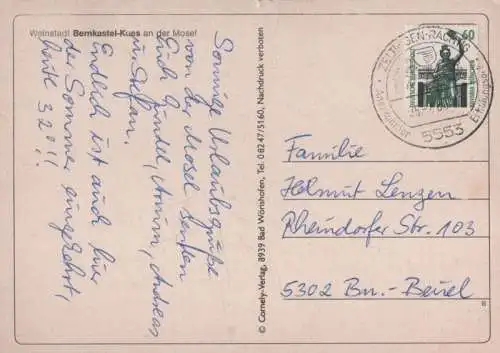 Weinstadt Bernkastel-Kues an der Mosel
Sonnige Urlaubsgrüße
von der Mosel senden
Euch Gündel, Armin, Andreas
u. Stefan.
Endlich ist auch hier
der Sommer eingekehrt,
heute 32°!!
© Cornely-Verlag, 8939 Bad Wörishofen, Tel. 08247/5160, Nachdruck verboten
60
ZELTINGEN-RACHTIG
Erholungsort
5553
Familie
Helmut Lenzen
Rheindorfer Str. 103
5302 Bn.-Beuel